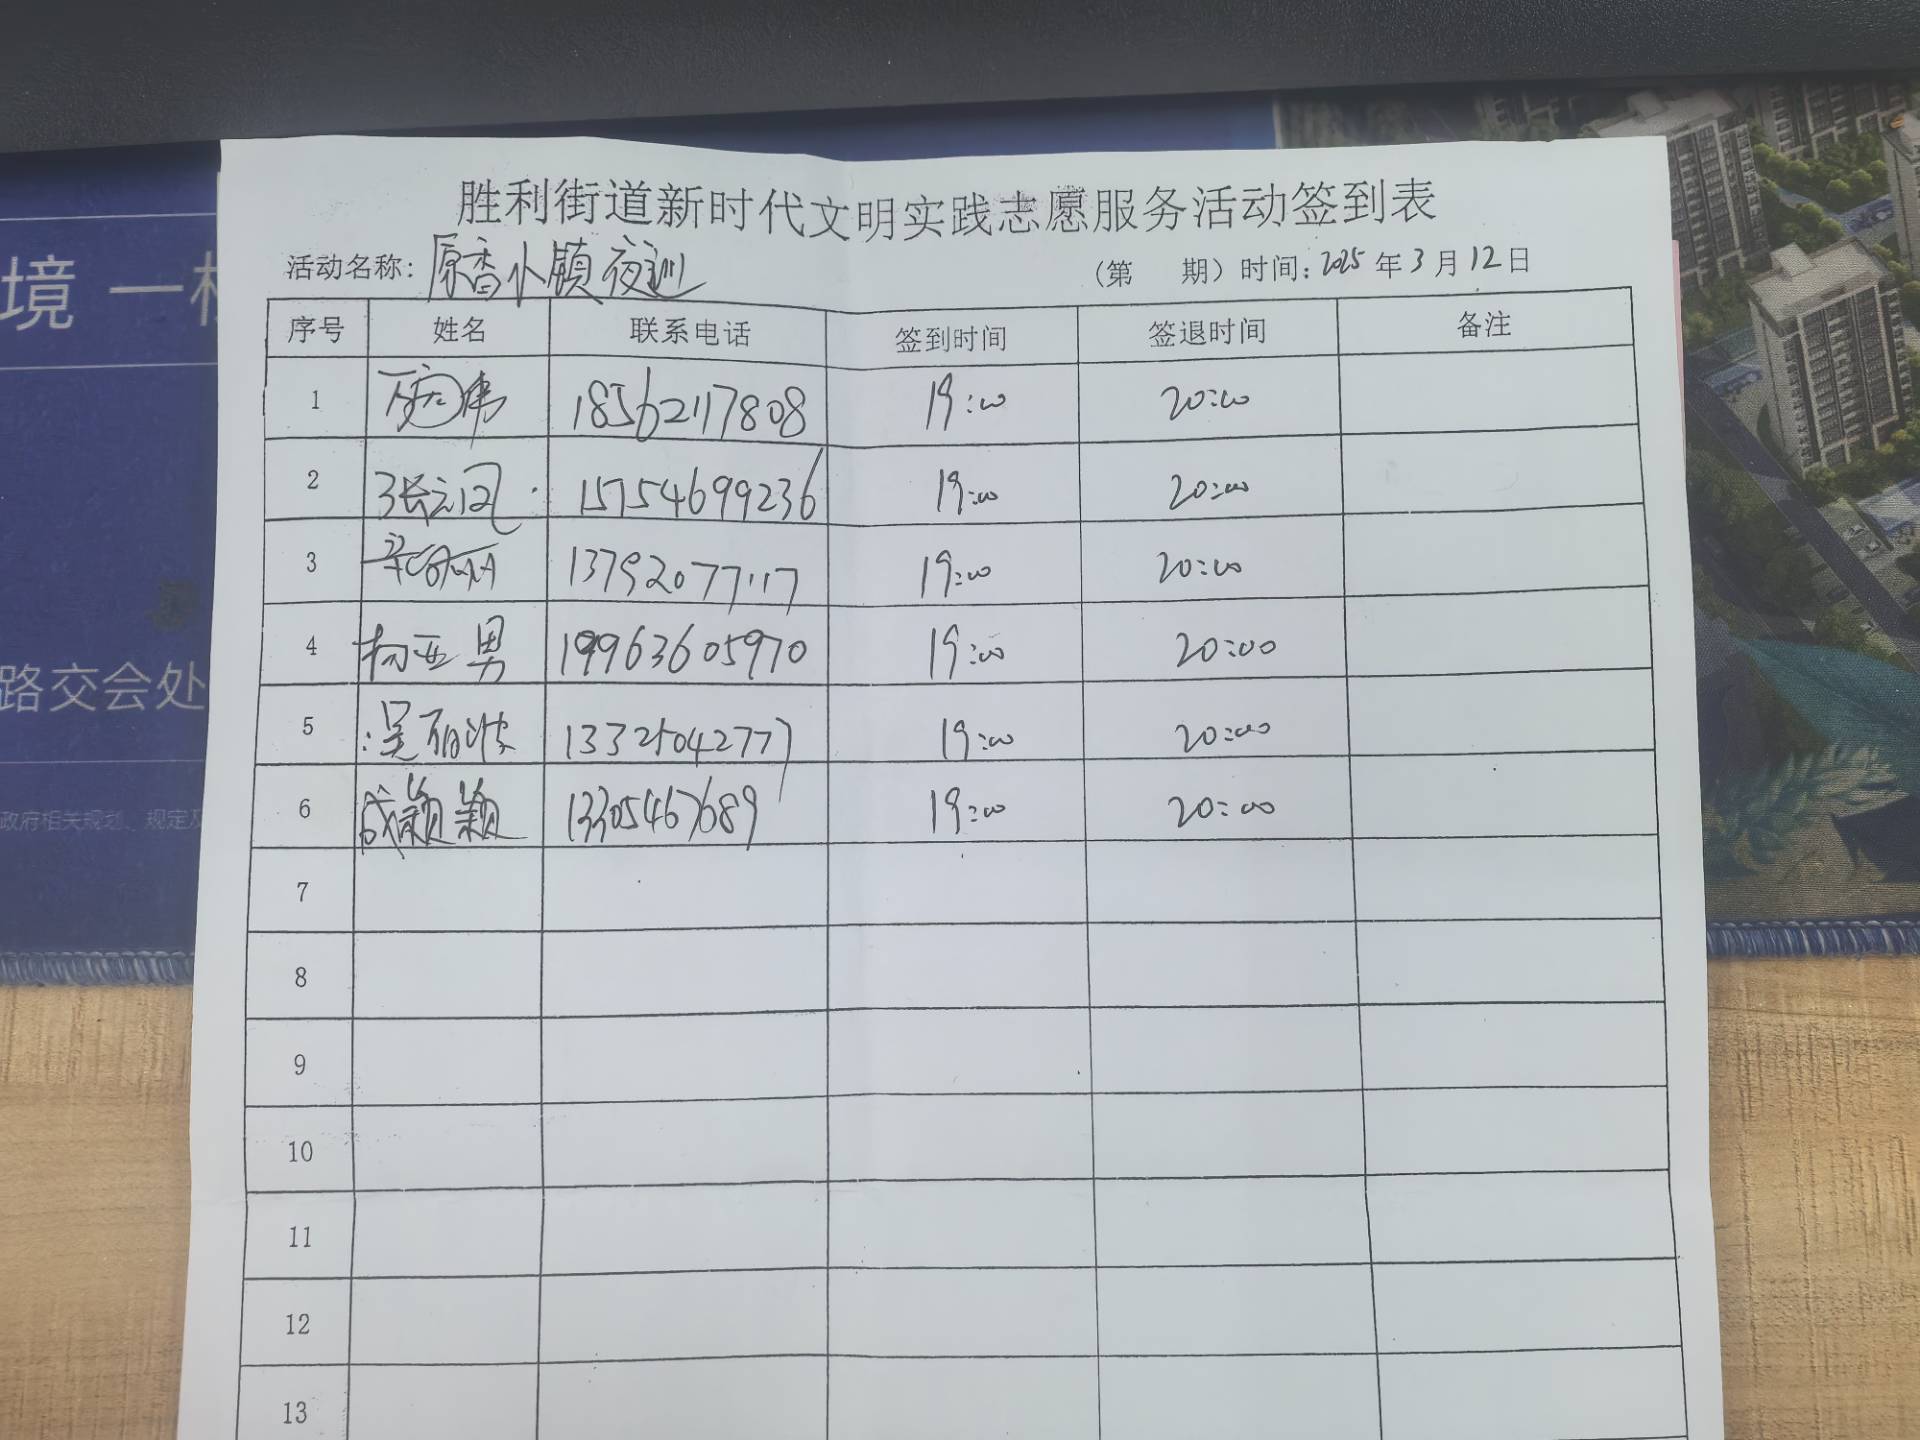 胜利街道新时代文明实践志愿服务活动签到表
活动名称：原香小镇夜巡 （第 期）时间：2025年3月12日
序号 姓名 联系电话 签到时间 签退时间 备注
1 18562117808 19:00 20:00
2 张立凤 15154699236 19:00 20:00
3 13792077117 19:00 20:00
4 杨亚男 19963605970 19:00 20:00
5 吴丽波 13325042777 19:00 20:00
6 成颖颖 13305467689 19:00 20:00
7
8
9
10
11
12
13
境 一
路交会处
政府相关规划、规定及